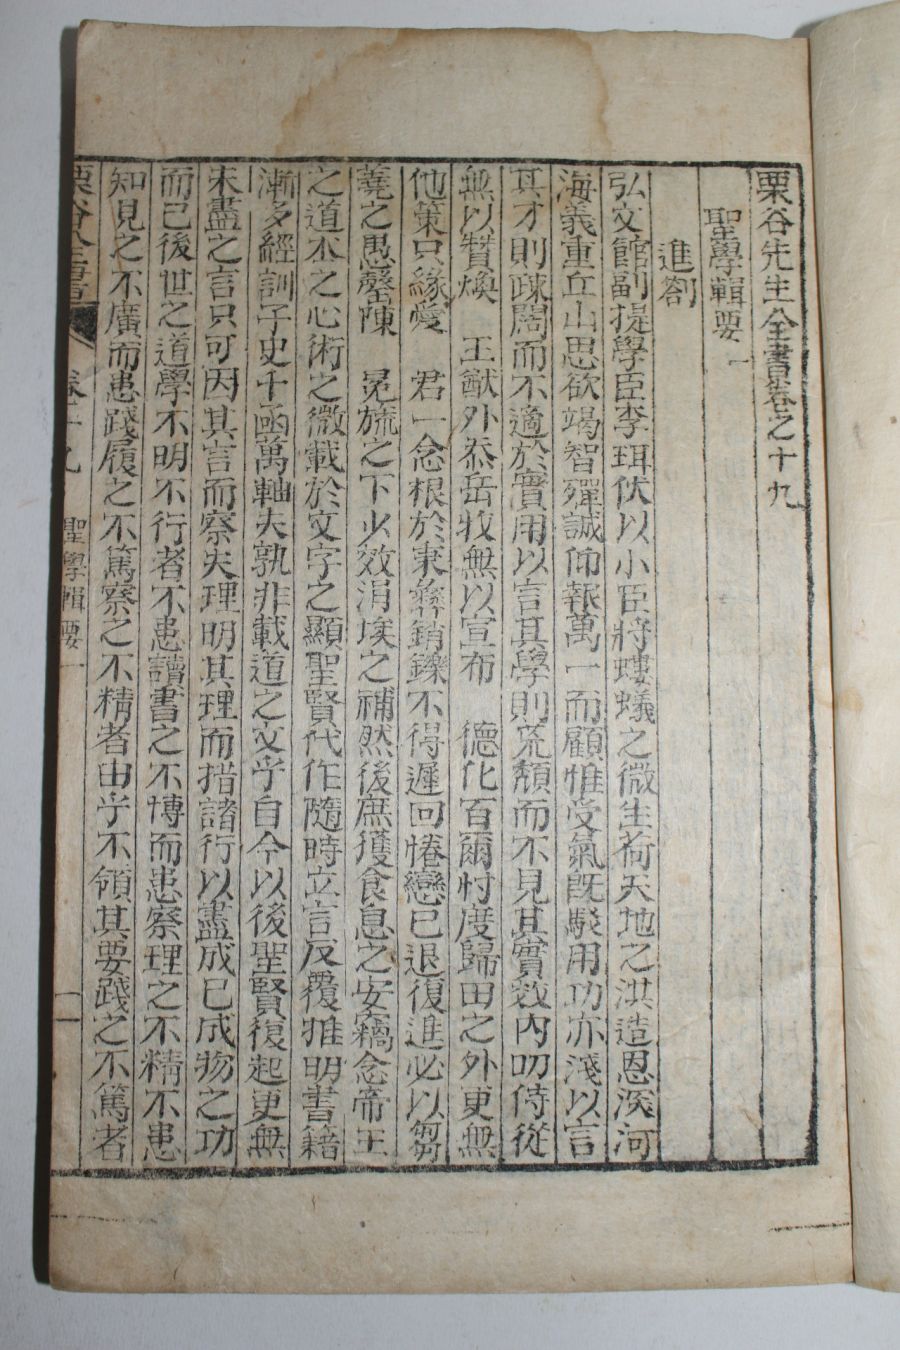 栗谷先生全書卷之十九
聖學輯要一
進劄
弘文館副提學臣李珥伏以小臣將螻蟻之微生荷天地之洪造恩深河
海義重丘山思欲竭智殫誠仰報萬一而顧惟受氣旣駁用功亦淺以言
其才則疎闊而不適於實用以言其學則荒頹而不見其實效內叨侍從
無以贊煥 王猷外忝岳牧無以宣布 德化百爾忖度歸田之外更無
他策只緣愛 君一念根於秉彝銷鑠不得遲回惓戀已退復進必以芻
蕘之愚罄陳 冕旒之下少效涓埃之補然後庶獲食息之安竊念帝王
之道本之心術之微載於文字之顯聖賢代作隨時立言反覆推明書籍
漸多經訓子史千函萬軸夫孰非載道之文乎自今以後聖賢復起更無
未盡之言只可因其言而察夫理明其理而措諸行以盡成己成物之功
而已後世之道學不明不行者不患讀書之不博而患察理之不精不患
知見之不廣而患踐履之不篤察之不精者由乎不領其要踐之不篤者
栗谷全書 卷十九 聖學輯要一 一